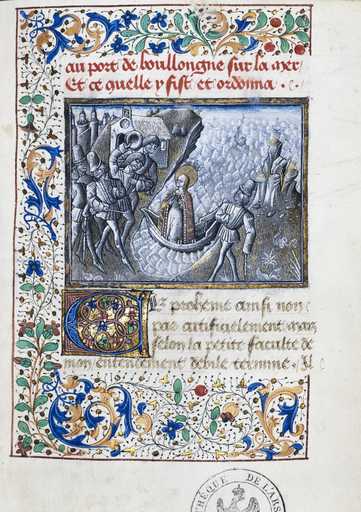 au port de boullongne sur la mer
Et ce quelle y fist et ordonna.
Ce proheme ainsi non
par artificielement mais
selon la petite faculte de
mon entendement debile termine. Il
THEQUE DE L'ARS